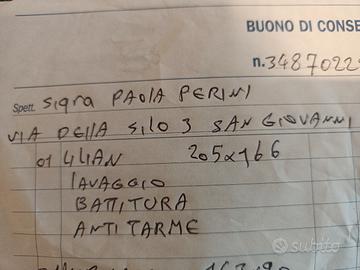 BUONO DI CONSE
n. 3487022
Spett. Sigra PAOLA PERINI
VIA DELLA SILO 3 SAN GIOVANNI
01 LILIAN 205x166
LAVAGGIO
BATTITURA
ANTITARME
subito